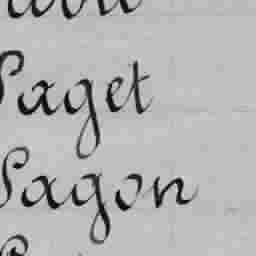 Paget
Pagon